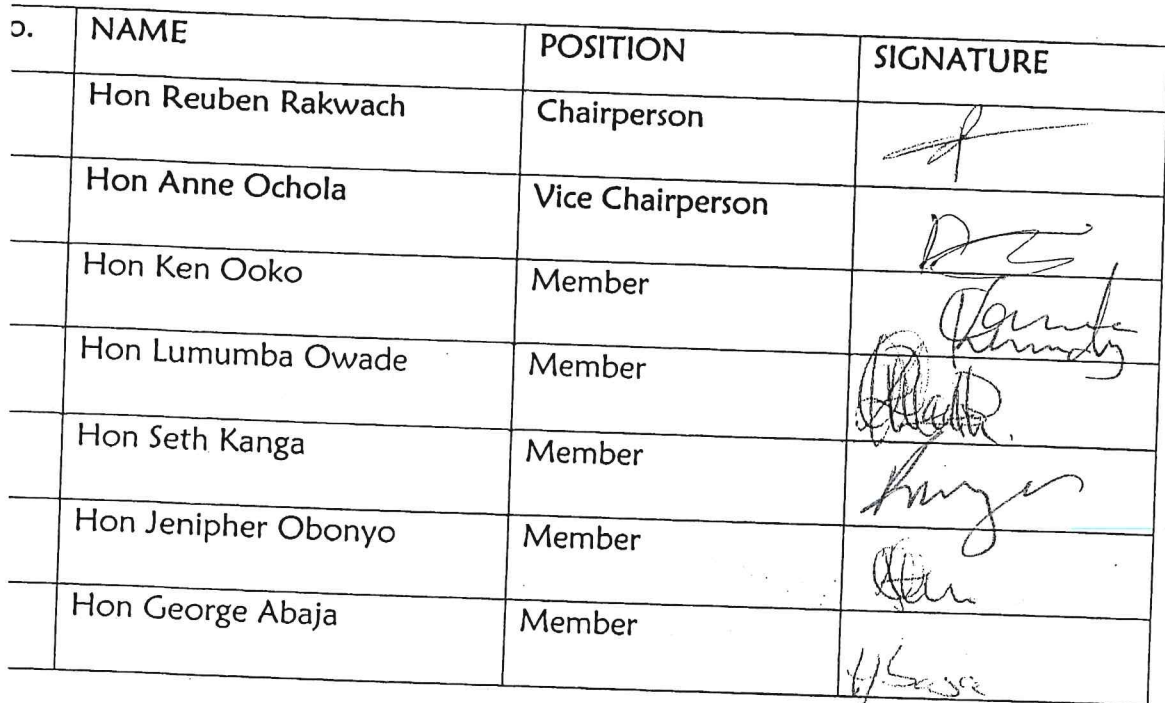 o. NAME POSITION SIGNATURE
Hon Reuben Rakwach Chairperson
Hon Anne Ochola Vice Chairperson
Hon Ken Ooko Member
Hon Lumumba Owade Member
Hon Seth Kanga Member
Hon Jenipher Obonyo Member
Hon George Abaja Member